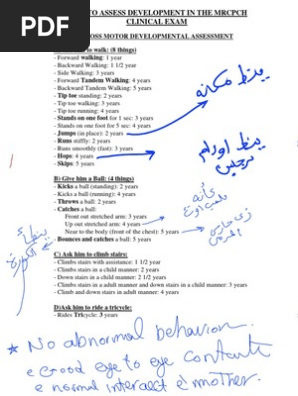 PDF
TO ASSESS DEVELOPMENT IN THE MRCPCH
CLINICAL EXAM
OSS MOTOR DEVELOPMENTAL ASSESSMENT
to walk: (8 things)
- Forward walking: 1 year
- Backward Walking: 1 1/2 year
- Side Walking: 3 years
- Forward Tandem Walking: 4 years
- Backward Tandem Walking: 5 years
- Tip toe standing: 2 years
- Tip toe walking: 3 years
- Tip toe running: 4 years
- Stands on one foot for 1 sec: 3 years
- Stands on one foot for 5 sec: 4 years
- Jumps (in place): 2 years
ينط مكانه
- Runs stiffly: 2 years
- Runs smoothly (fast): 3 years
- Hops: 4 years
- Skips: 5 years
B) Give him a Ball: (4 things)
- Kicks a ball (standing): 2 years
- Kicks a ball (running): 4 years
- Throws a ball: 2 years
- Catches a ball:
Front out stretched arm: 3 years
Up out stretched arm: 4 years
Near to the body (front of the chest): 5 years
- Bounces and catches a ball: 5 years
C) Ask him to climb stairs:
- Climb stairs with assistance: 1 1/2 year
- Climbs stairs in a child manner: 2 years
- Climbs stairs in a adult manner: 2 1/2 years
- Climbs stairs in a adult manner and down stairs in a child manner: 3 years
- Climb and down stairs in adult manner: 4 years
D)Ask him to ride a tricycle:
- Rides Tricycle: 3 years
* No abnormal behavior.
Good eye to eye contact
normal interact mother.